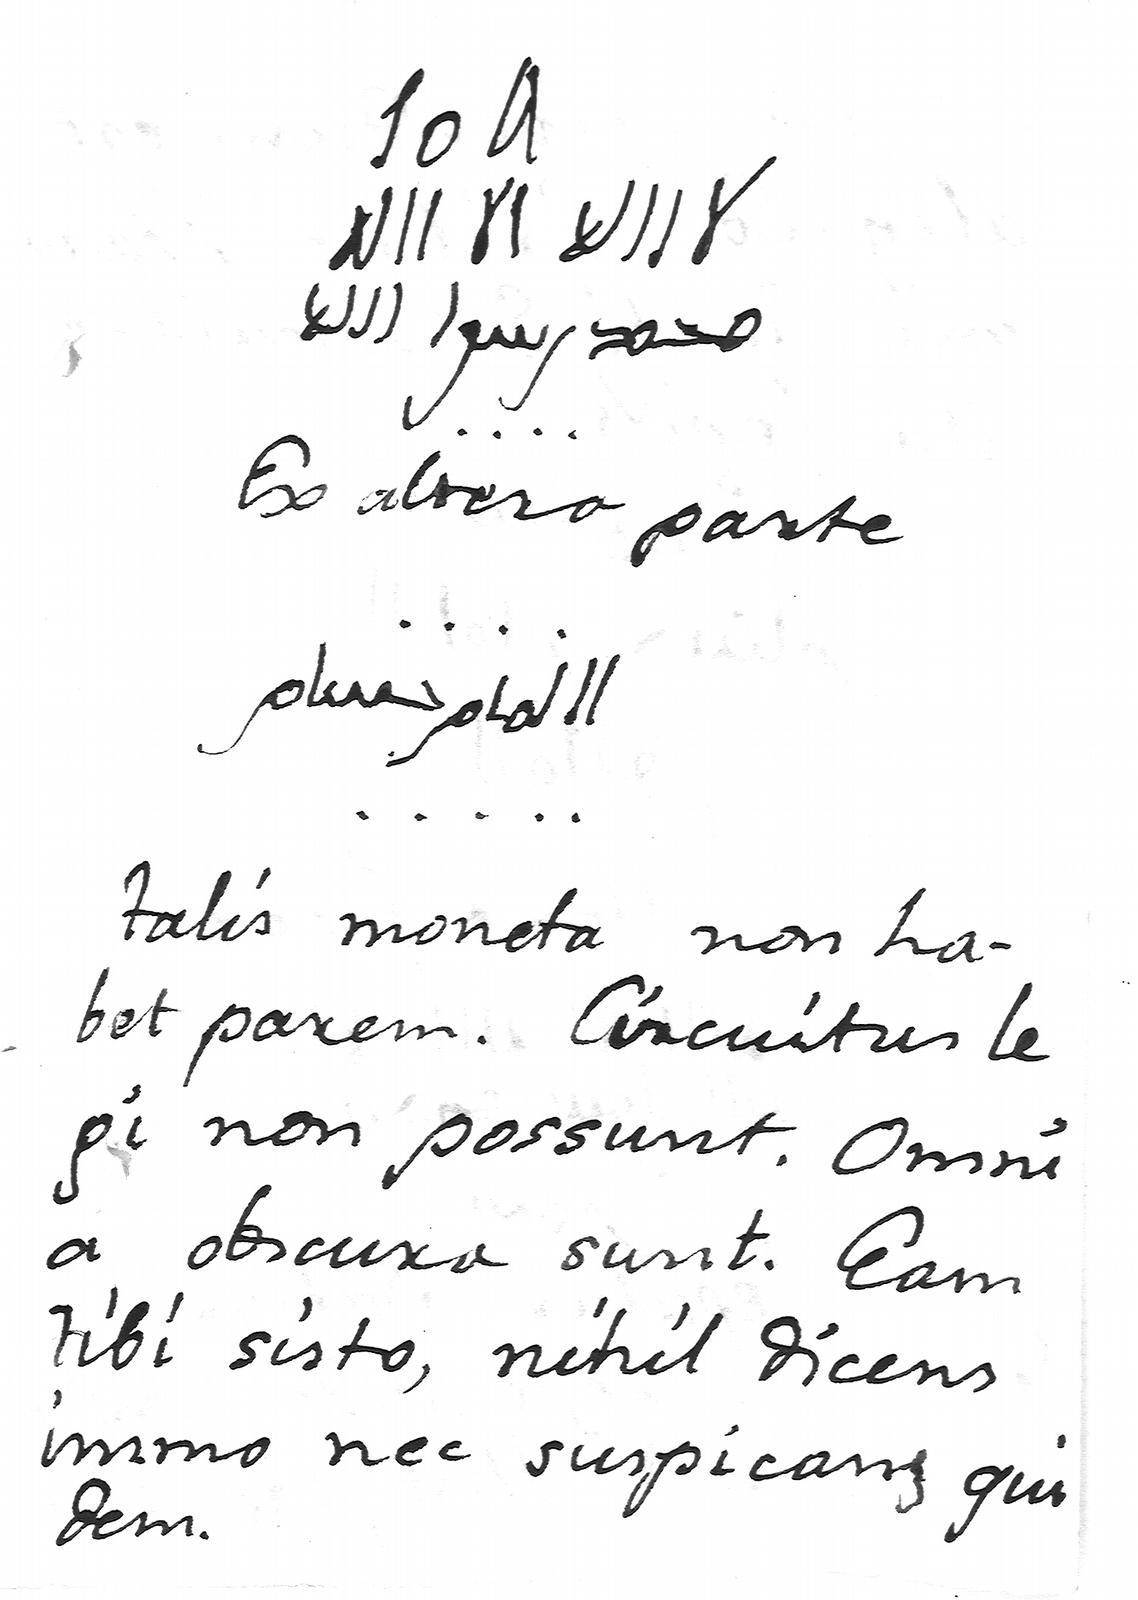 لا اله الا الله
محمد رسول الله
. . . .
Ex altera parte
. . . .
. . . . .
talis moneta non ha-
bet parem. Circuitus le
gi non possunt. Omni
a obscura sunt. Eam
tibi sisto, nihil dicens
immo nec suspicans qui
dem.